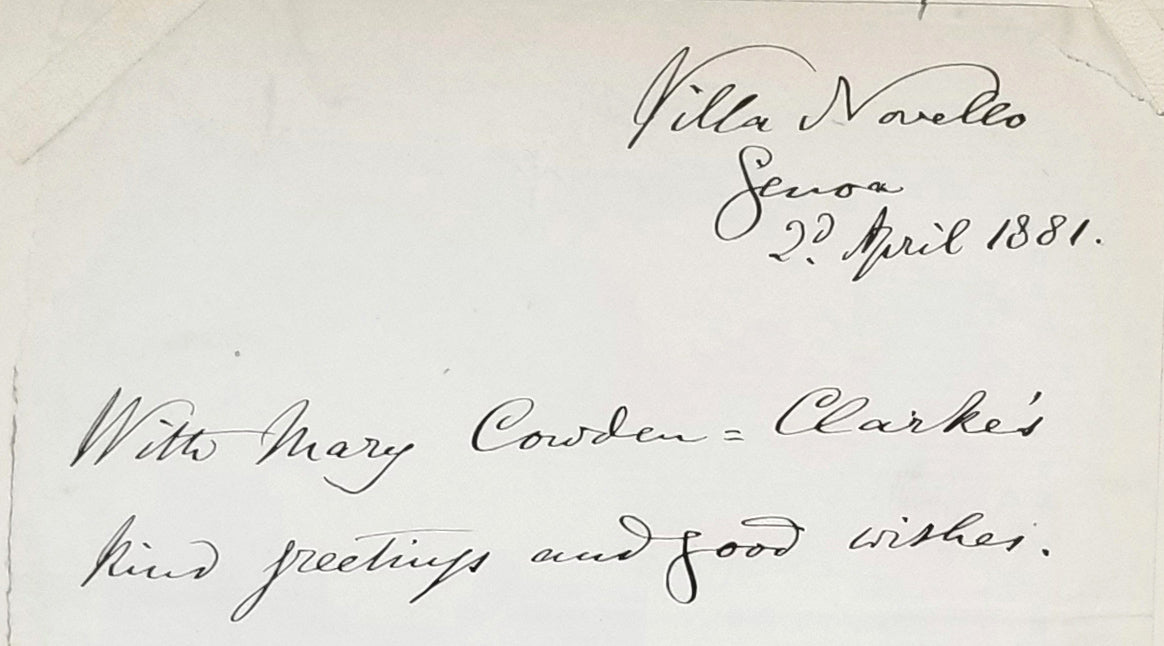 Villa Novello
Genoa
2ᵈ. April 1881.
With Mary Cowden=Clarke's
kind greetings and good wishes.